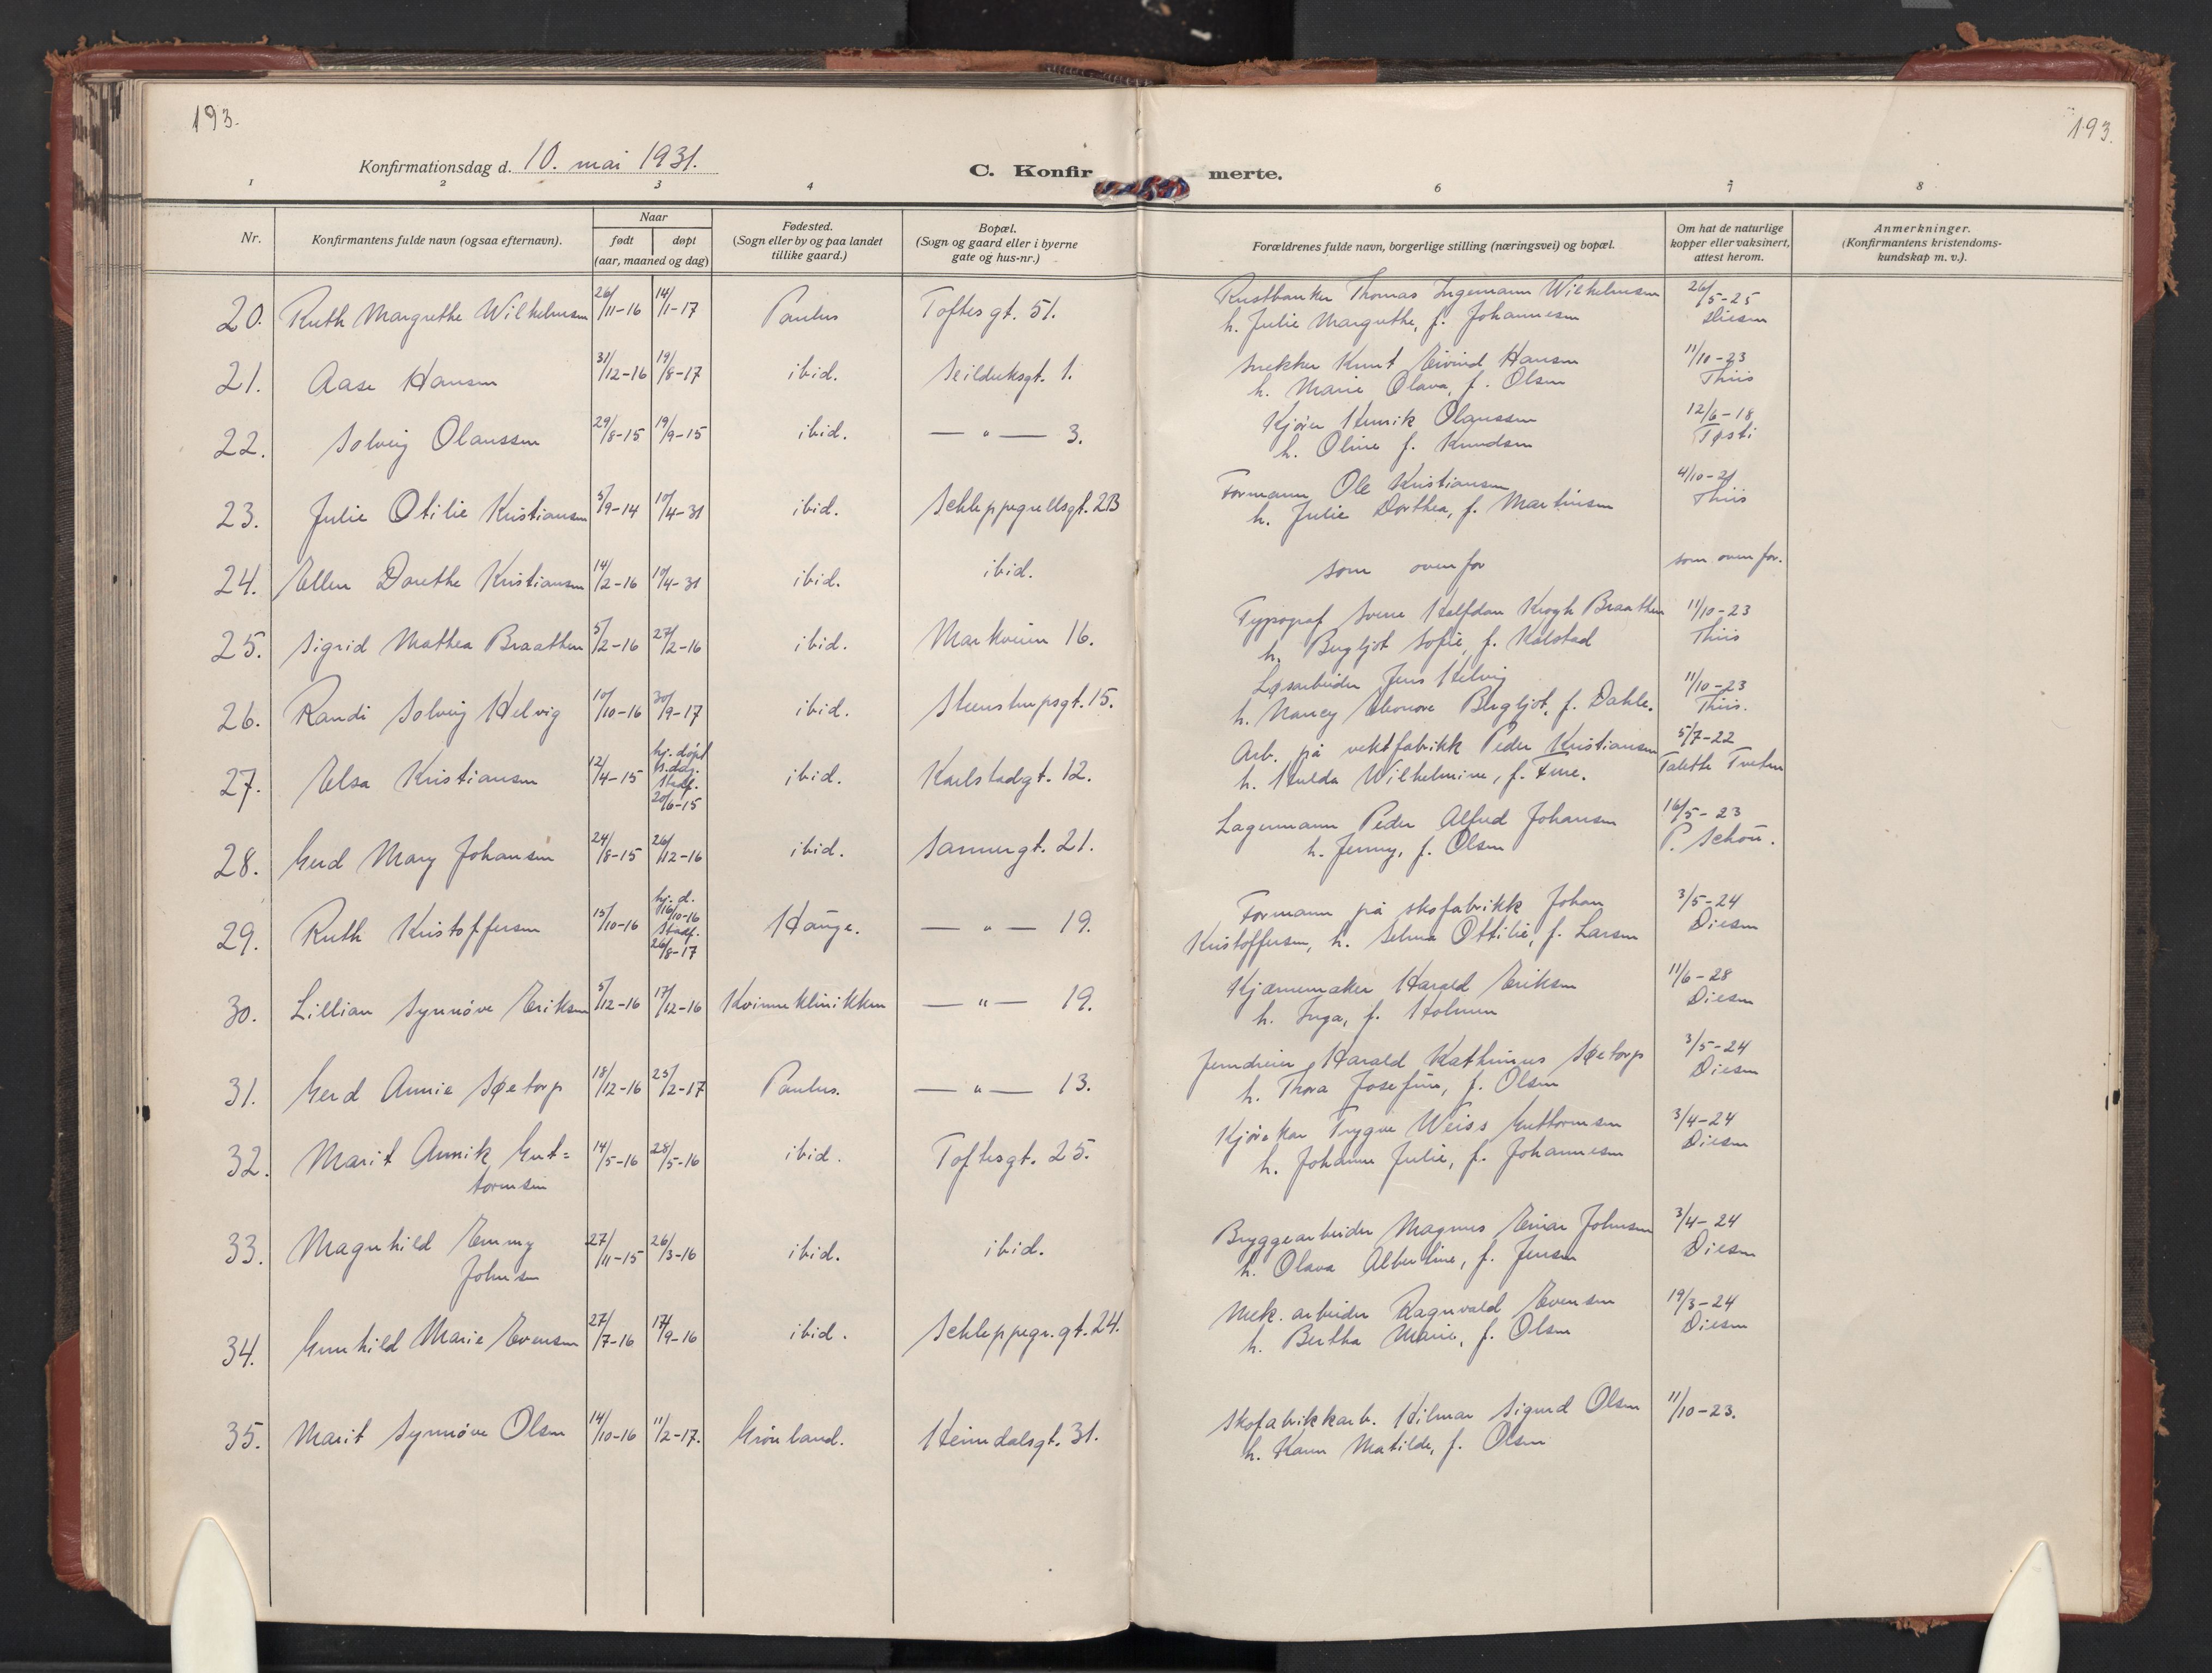 193.
193.
Konfirmationsdag d. 10. mai 1931.
C. Konfir merte.
1 2 3 4 6 7 8
Nr.
Konfirmantens fulde navn (ogsaa efternavn).
Naar
født
døpt
(aar, maaned og dag)
Fødested.
(Sogn eller by og paa landet
tillike gaard.)
Bopæl.
(Sogn og gaard eller i byerne
gate og hus-nr.)
Forældrenes fulde navn, borgerlige stilling (næringsvei) og bopæl.
Om hat de naturlige
kopper eller vaksinert,
attest herom.
Anmerkninger.
(Konfirmantens kristendoms-
kundskap m. v.).
20. Ruth Margrethe Wilhelmsen 26/11-16 14/1-17 Paulus Toftesgt. 51. Rustbanker Thomas Ingemann Wilhelmsen 26/5-25
h. Julie Margrethe, f. Johannesen Diesen
21. Aase Hansen 31/12-16 19/8-17 ibid. Seilduksgt. 1. Snekker Knut Eivind Hansen 11/10-23
h. Marie Olava, f. Olsen Thiis
22. Solveig Olaussen 29/8-15 19/9-15 ibid. — " — 3. Kjører Henrik Olaussen 12/6-18
h. Oline f. Knudsen
23. Julie Otilie Kristiansen 5/9-14 10/4-31 ibid. Schleppegrellsgt. 2B Formann Ole Kristiansen 4/10-21
h. Julie Dorthea, f. Martinsen Thiis
24. Ellen Dorethe Kristiansen 14/2-16 10/4-31 ibid. ibid. som ovenfor som ovenfor.
25. Sigrid Mathea Braathen 5/2-16 27/2-16 ibid. Markveien 16. Typograf Sverre Halfdan Krogh Braathen 11/10-23
h. Bergljot Sofie, f. Kalstad Thiis
26. Randi Solveig Helvig 10/10-16 30/9-17 ibid. Steenstrupsgt. 15. Løsarbeider Jens Helvig 11/10-23
h. Nancy Eleonore Bergljot, f. Dahle. Thiis.
27. Elsa Kristiansen 12/4-15 hj. døpt s.dag. stadf. 20/6-15 ibid. Karlstadgt. 12. Arb. på vektfabrikk Peder Kristiansen 5/7-22
h. Hulda Wilhelmine, f. Fure. Talette Tveten
28. Gerd Mary Johansen 24/8-15 26/12-16 ibid. Sannergt. 21. Lagermann Peder Alfred Johansen 16/5-23
h. Jenny, f. Olsen P. Schou.
29. Ruth Kristoffersen 15/10-16 hj. d. 16/10-16 Stadf. 26/8-17 Hauge. — " — 19. Formann på skofabrikk Johan 3/5-24
Kristoffersen, h. Selma Ottilie, f. Larsen Diesen
30. Lillian Synnöve Eriksen 5/12-16 17/12-16 Kvinneklinikken — " — 19. Kjærnemaker Harald Eriksen 11/6-28
h. Inga, f. Holmen Diesen
31. Gerd Annie Søetorp 18/12-16 25/2-17 Paulus. — " — 13. Jerndreier Harald Kathinius Søetorp 3/5-24
h. Thora Josefine, f. Olsen Diesen
32. Marit Annik Gut=
tormsen 14/5-16 28/5-16 ibid. Toftesgt. 25. Kjørekar Trygve Weiss Guttormsen 3/4-24
h. Johanne Julie, f. Johannesen Diesen
33. Magnhild Emmy
Johnsen 27/11-15 26/3-16 ibid. ibid. Bryggearbeider Magnus Einar Johnsen 3/4-24
h. Olava Albertine, f. Jensen Diesen
34. Gunhild Marie Evensen 27/7-16 17/9-16 ibid. Schleppegr.gt. 24. Mek. arbeider Ragnvald Evensen 19/3-24
h. Bertha Marie, f. Olsen Diesen
35. Marit Synnöve Olsen 14/10-16 11/2-17. Grönland. Heimdalsgt. 31. Skofabrikkarb. Hilmar Sigurd Olsen 11/10-23.
h. Karen Matilde, f. Olsen